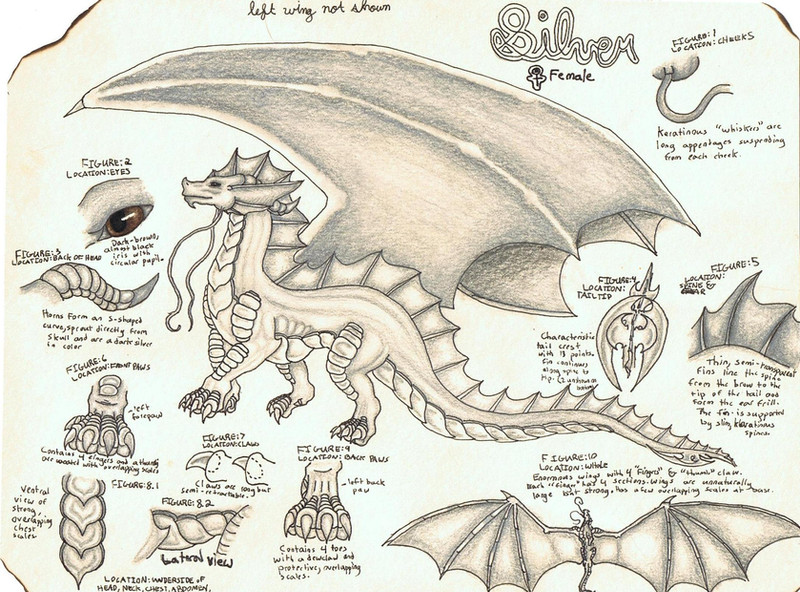 left wing not shown
Silver
Female
FIGURE:1
LOCATION:CHEEKS
Keratinous "whiskers" are
long appendages suspending
from each cheek.
FIGURE:2
LOCATION:EYES
Dark-brown,
almost black
iris with
circular pupil.
FIGURE:3
LOCATION:BACK OF HEAD
Horns form an S-shaped
curve, sprout directly from
skull and are a dark silver
in color
FIGURE:4
LOCATION:
TAIL TIP
Characteristic
tail crest
with 13 points.
Fin continues
along spine to
tip. (2 unshown
FIGURE:5
LOCATION:
SPINE &
EAR
Thin, semi-transparent
fins line the spine
from the brow to the
tip of the tail and
form the ear frill.
The fin is supported
by slim keratinous
spines.
FIGURE:6
LOCATION:FRONT PAWS
left
forepaw
Contains 4 fingers and a thumb
are coated with overlapping scales
FIGURE:7
LOCATION:CLAWS
Claws are long but
semi-retractable.
FIGURE:8.1
Ventral
view of
strong,
overlapping
chest
scales
FIGURE:8.2
Lateral view
LOCATION:UNDERSIDE OF
HEAD, NECK, CHEST, ABDOMEN,
FIGURE:9
LOCATION:BACK PAWS
left back
paw
Contains 4 toes
with a dewclaw and
protective, overlapping
scales.
FIGURE:10
LOCATION:WHOLE
Enormous wings with 4 "fingers" & "thumb" claw.
Each "finger" has 4 sections. Wings are unnaturally
large but strong. Has a few overlapping scales at base.